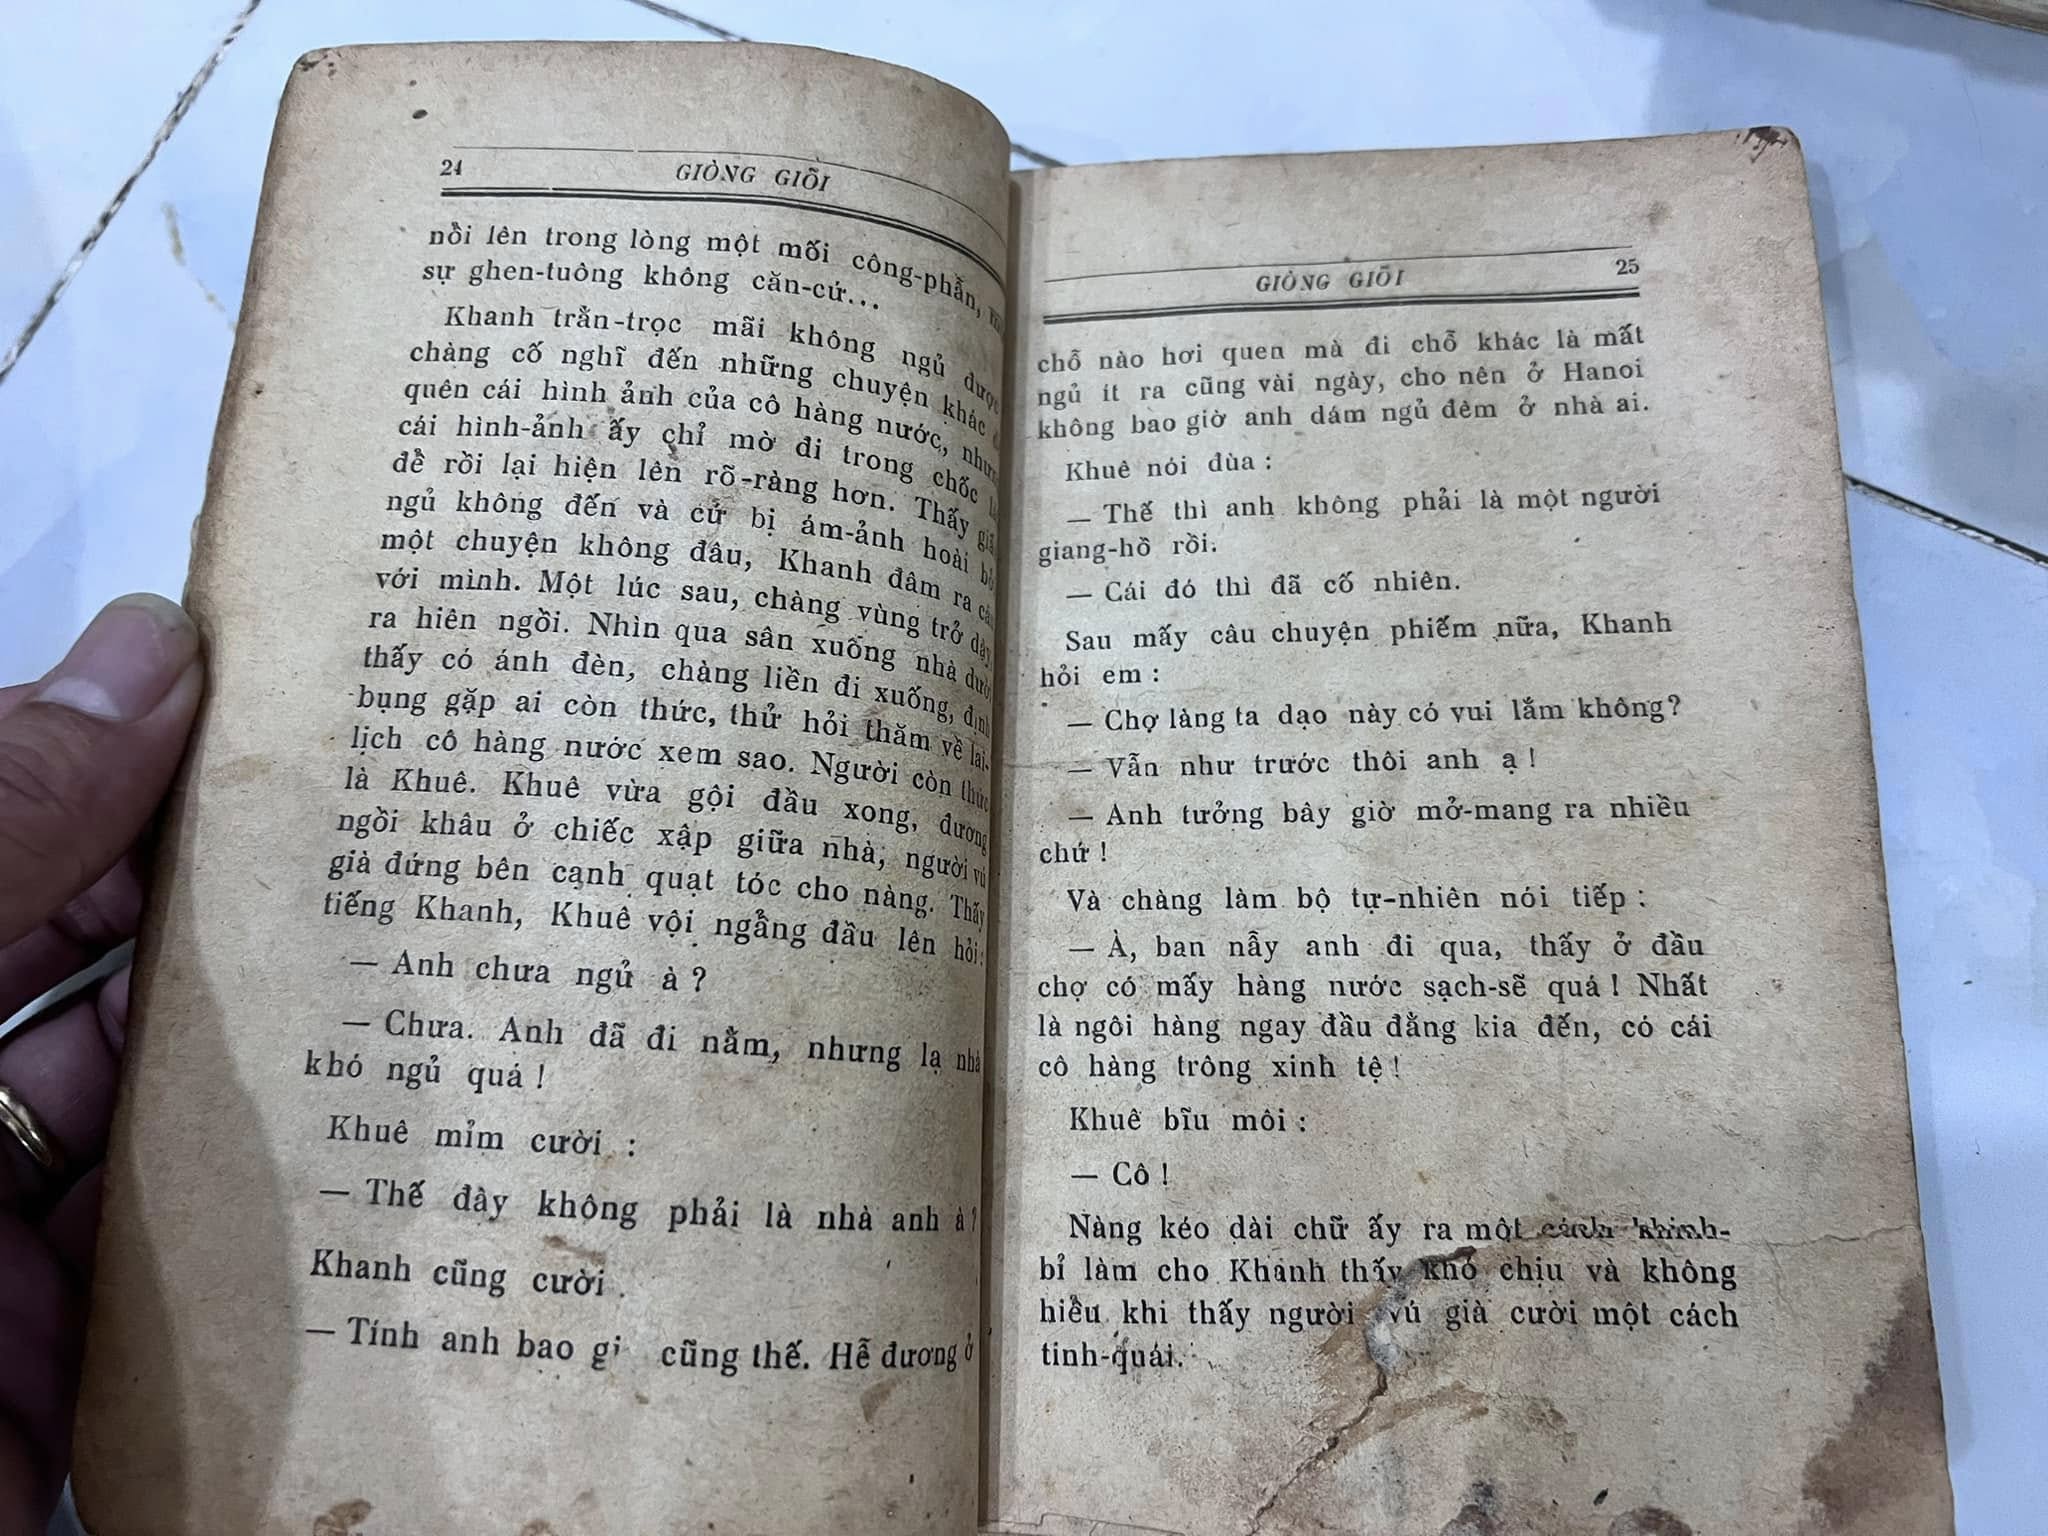 24
GIÒNG GIÕI
nổi lên trong lòng một mối công-phẫn,
sự ghen-tuông không căn-cứ...
Khanh trằn-trọc mãi không ngủ được
chàng cố nghĩ đến những chuyện khác
quên cái hình ảnh của cô hàng nước, nhưng
cái hình-ảnh ấy chỉ mờ đi trong chốc
để rồi lại hiện lên rõ-ràng hơn. Thấy
ngủ không đến và cứ bị ám-ảnh hoài
một chuyện không đâu, Khanh đâm ra
với mình. Một lúc sau, chàng vùng trở dậy
ra hiên ngồi. Nhìn qua sân xuống nhà dưới
thấy có ánh đèn, chàng liền đi xuống, định
bụng gặp ai còn thức, thử hỏi thăm về lai-
lịch cô hàng nước xem sao. Người còn thức
là Khuê. Khuê vừa gội đầu xong, đương
ngồi khâu ở chiếc xập giữa nhà, người vú
già đứng bên cạnh quạt tóc cho nàng. Thấy
tiếng Khanh, Khuê vội ngẩng đầu lên hỏi:
— Anh chưa ngủ à?
— Chưa. Anh đã đi nằm, nhưng lạ nhà
khó ngủ quá!
Khuê mỉm cười :
— Thế đày không phải là nhà anh à?
Khanh cũng cười.
— Tính anh bao cũng thế. Hễ đương ở
GIÒNG GIÕI
25
chỗ nào hơi quen mà đi chỗ khác là mất
ngủ ít ra cũng vài ngày, cho nên ở Hanoi
không bao giờ anh dám ngủ đêm ở nhà ai.
Khuê nói đùa :
— Thế thì anh không phải là một người
giang-hồ rồi.
— Cái đó thì đã cố nhiên.
Sau mấy câu chuyện phiếm nữa, Khanh
hỏi em :
— Chợ làng ta dạo này có vui lắm không?
— Vẫn như trước thôi anh ạ!
— Anh tưởng bây giờ mở-mang ra nhiều
chứ!
Và chàng làm bộ tự-nhiên nói tiếp :
— À, ban nẫy anh đi qua, thấy ở đầu
chợ có mấy hàng nước sạch-sẽ quá! Nhất
là ngôi hàng ngay đầu đằng kia đến, có cái
cô hàng trông xinh tệ!
Khuê bĩu môi :
— Cô!
Nàng kéo dài chữ ấy ra một cách khinh-
bỉ làm cho Khanh thấy khó chịu và không
hiểu khi thấy người vú già cười một cách
tinh-quái.